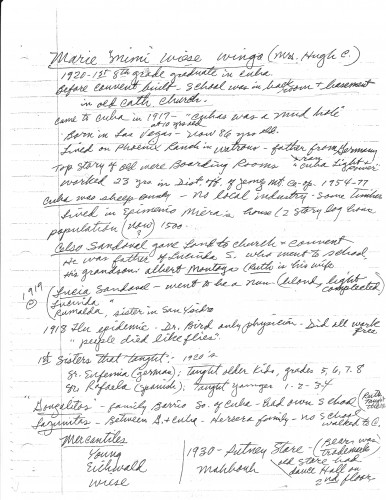 Marie "Mimi" Wiese Wingo (Mrs. Hugh C.)
1920 - 1st 8th grade graduate in Cuba.
Before convent built - School was in back room + basement
in old Cath. Church.
came to Cuba in 1917 - "Cuba was a mud hole"
at 10 yrs old
Born in Las Vegas - Now 86 yrs old.
Lived on Phoenix Ranch in Watrous - father from Germany
Top Story of old were Boarding Rooms "Cuba Light &
worked 23 yrs in Dist. off. of Jemez Mt. Co-op. 1954-77
Cuba was sheep - No local industry - Some timber
Lived in Epimenio Miera's house (2 story log house
population (now) 1500.
Celso Sandoval gave land to church + convent
He was father of Lucinda S. who went to school
His grandson: Albert Montoya (Ruth is his wife
1919 (Lucia Sandoval - went to be a nun (blond, light-
complected)
Lucinda "
Rumalda, sister in San Ysidro
1918 Flu epidemic - Dr. Bird only physician - Did all work
free
"people died like flies."
1st Sisters that taught: 1920's
Sr. Eufemia (German); taught older kids, grades 5, 6, 7, 8
Sr. Rafaela (Spanish); taught younger 1-2-3-4
"Gonzalitos" - family Barrio So. of Cuba - had own School (Ruth
taught
- Between G. + Cuba - Herrera family - no School
walked to C.
Mercantiles
Young
Eichwald
Wiese
1930 - Putney Store - (Bear was
trademark
old store had
dance Hall on
2nd floor